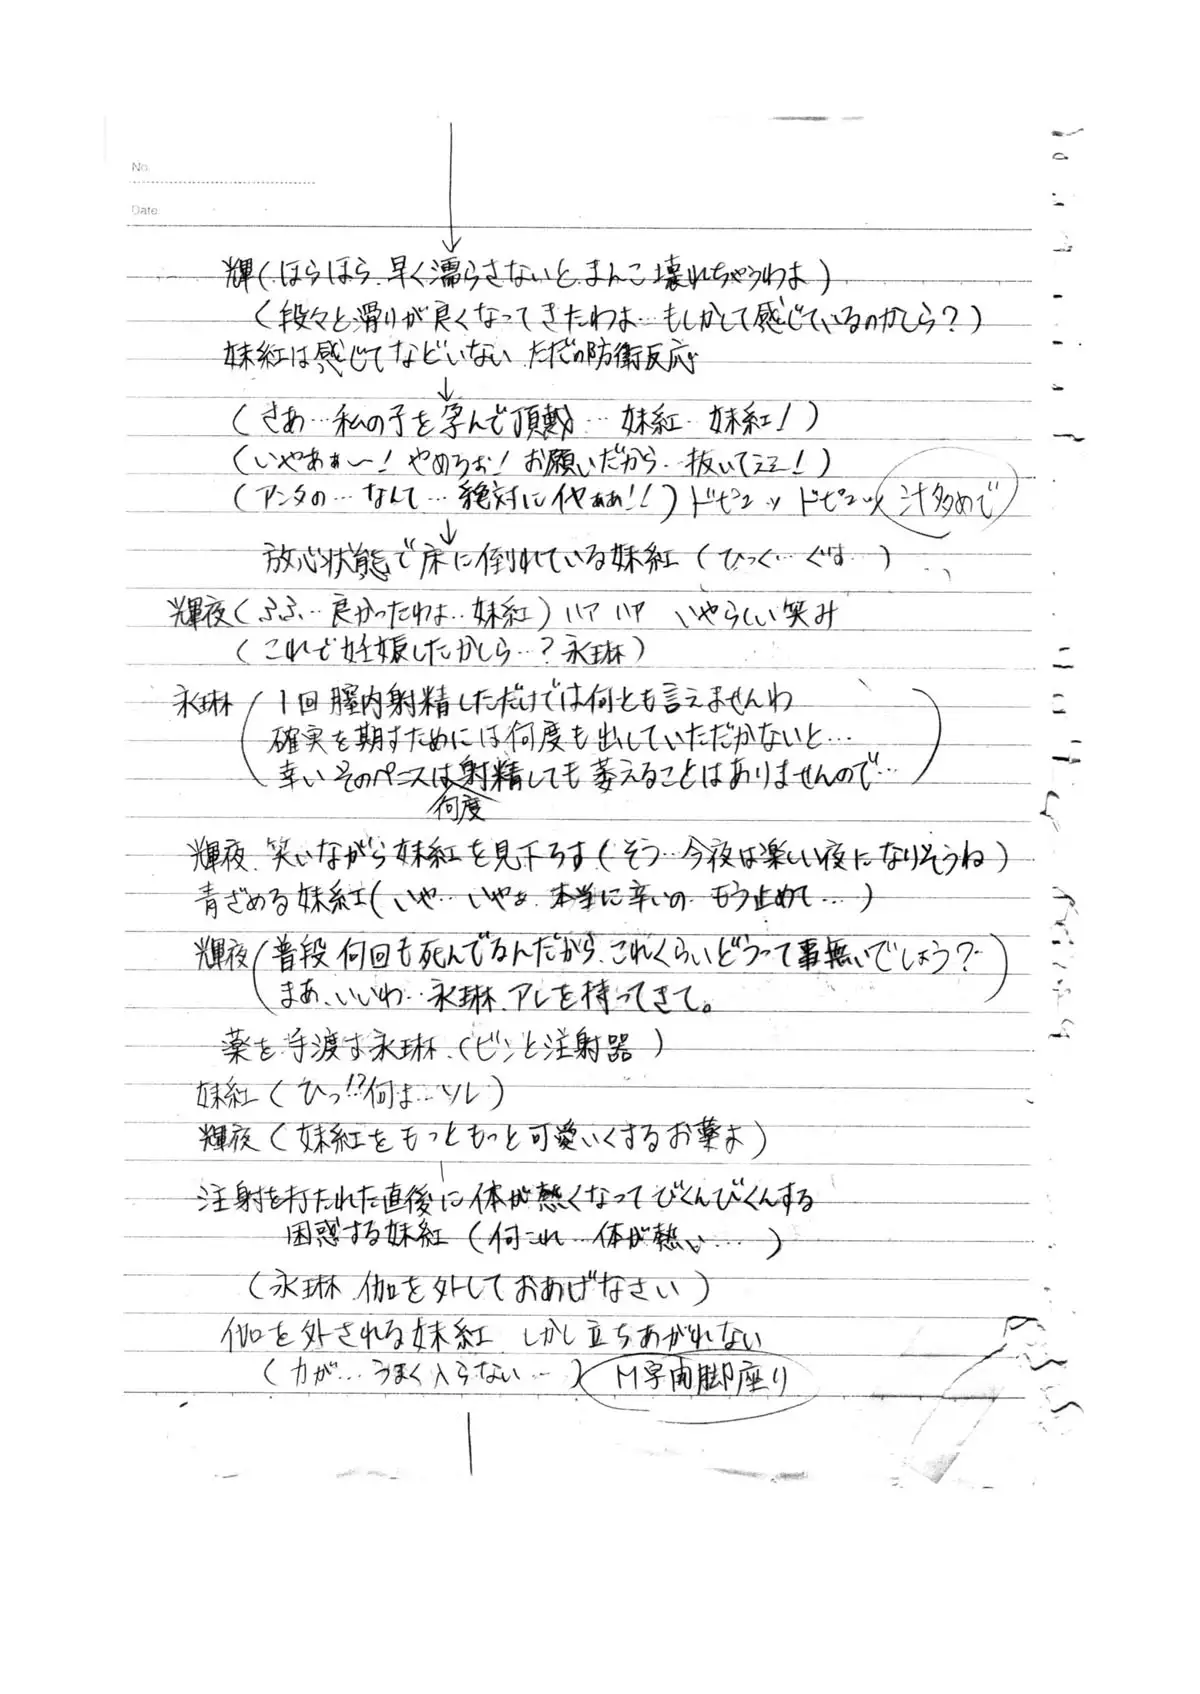 No.
Date
輝(ほらほら、早く濡らさないと、まんこ壊れちゃうわよ)
(段々と滑りが良くなってきたわよ…もしかして感じているのかしら?)
妹紅は感じてなどいない ただの防衛反応
(さあ…私の子を孕んで頂戴…妹紅…妹紅!)
(いやあぁ〜!やめろぉ!お願いだから…抜いてえぇー!)
(アンタの…なんて…絶対にイヤぁあ!!)ドピュッ ドピュッ 汁多めで
放心状態で床に倒れている妹紅(ひっく…ぐす…)
輝夜(ふふ…良かったわよ…妹紅)ハアハア いやらしい笑み
(これで妊娠したかしら…?永琳)
永琳(1回膣内射精しただけでは何とも言えませんわ
確実を期すためには何度も出していただかないと…
幸いそのペニスは何度射精しても萎えることはありませんので…)
輝夜、笑いながら妹紅を見下ろす(そう…今夜は楽しい夜になりそうね)
青ざめる妹紅(いや…いやぁ、本当に辛いの もう止めて…)
輝夜(普段何回も死んでるんだから、これくらいどうって事無いでしょう?
まあ、いいわ…永琳、アレを持ってきて。)
薬を手渡す永琳(ビンと注射器)
妹紅(ひっ!?何よ…ソレ)
輝夜(妹紅をもっともっと可愛いくするお薬よ)
注射を打たれた直後に体が熱くなってびくんびくんする
困惑する妹紅(何これ…体が熱い…)
(永琳、伽を外しておあげなさい)
伽を外される妹紅 しかし立ちあがれない
(力が…うまく入らない…)M字開脚座り